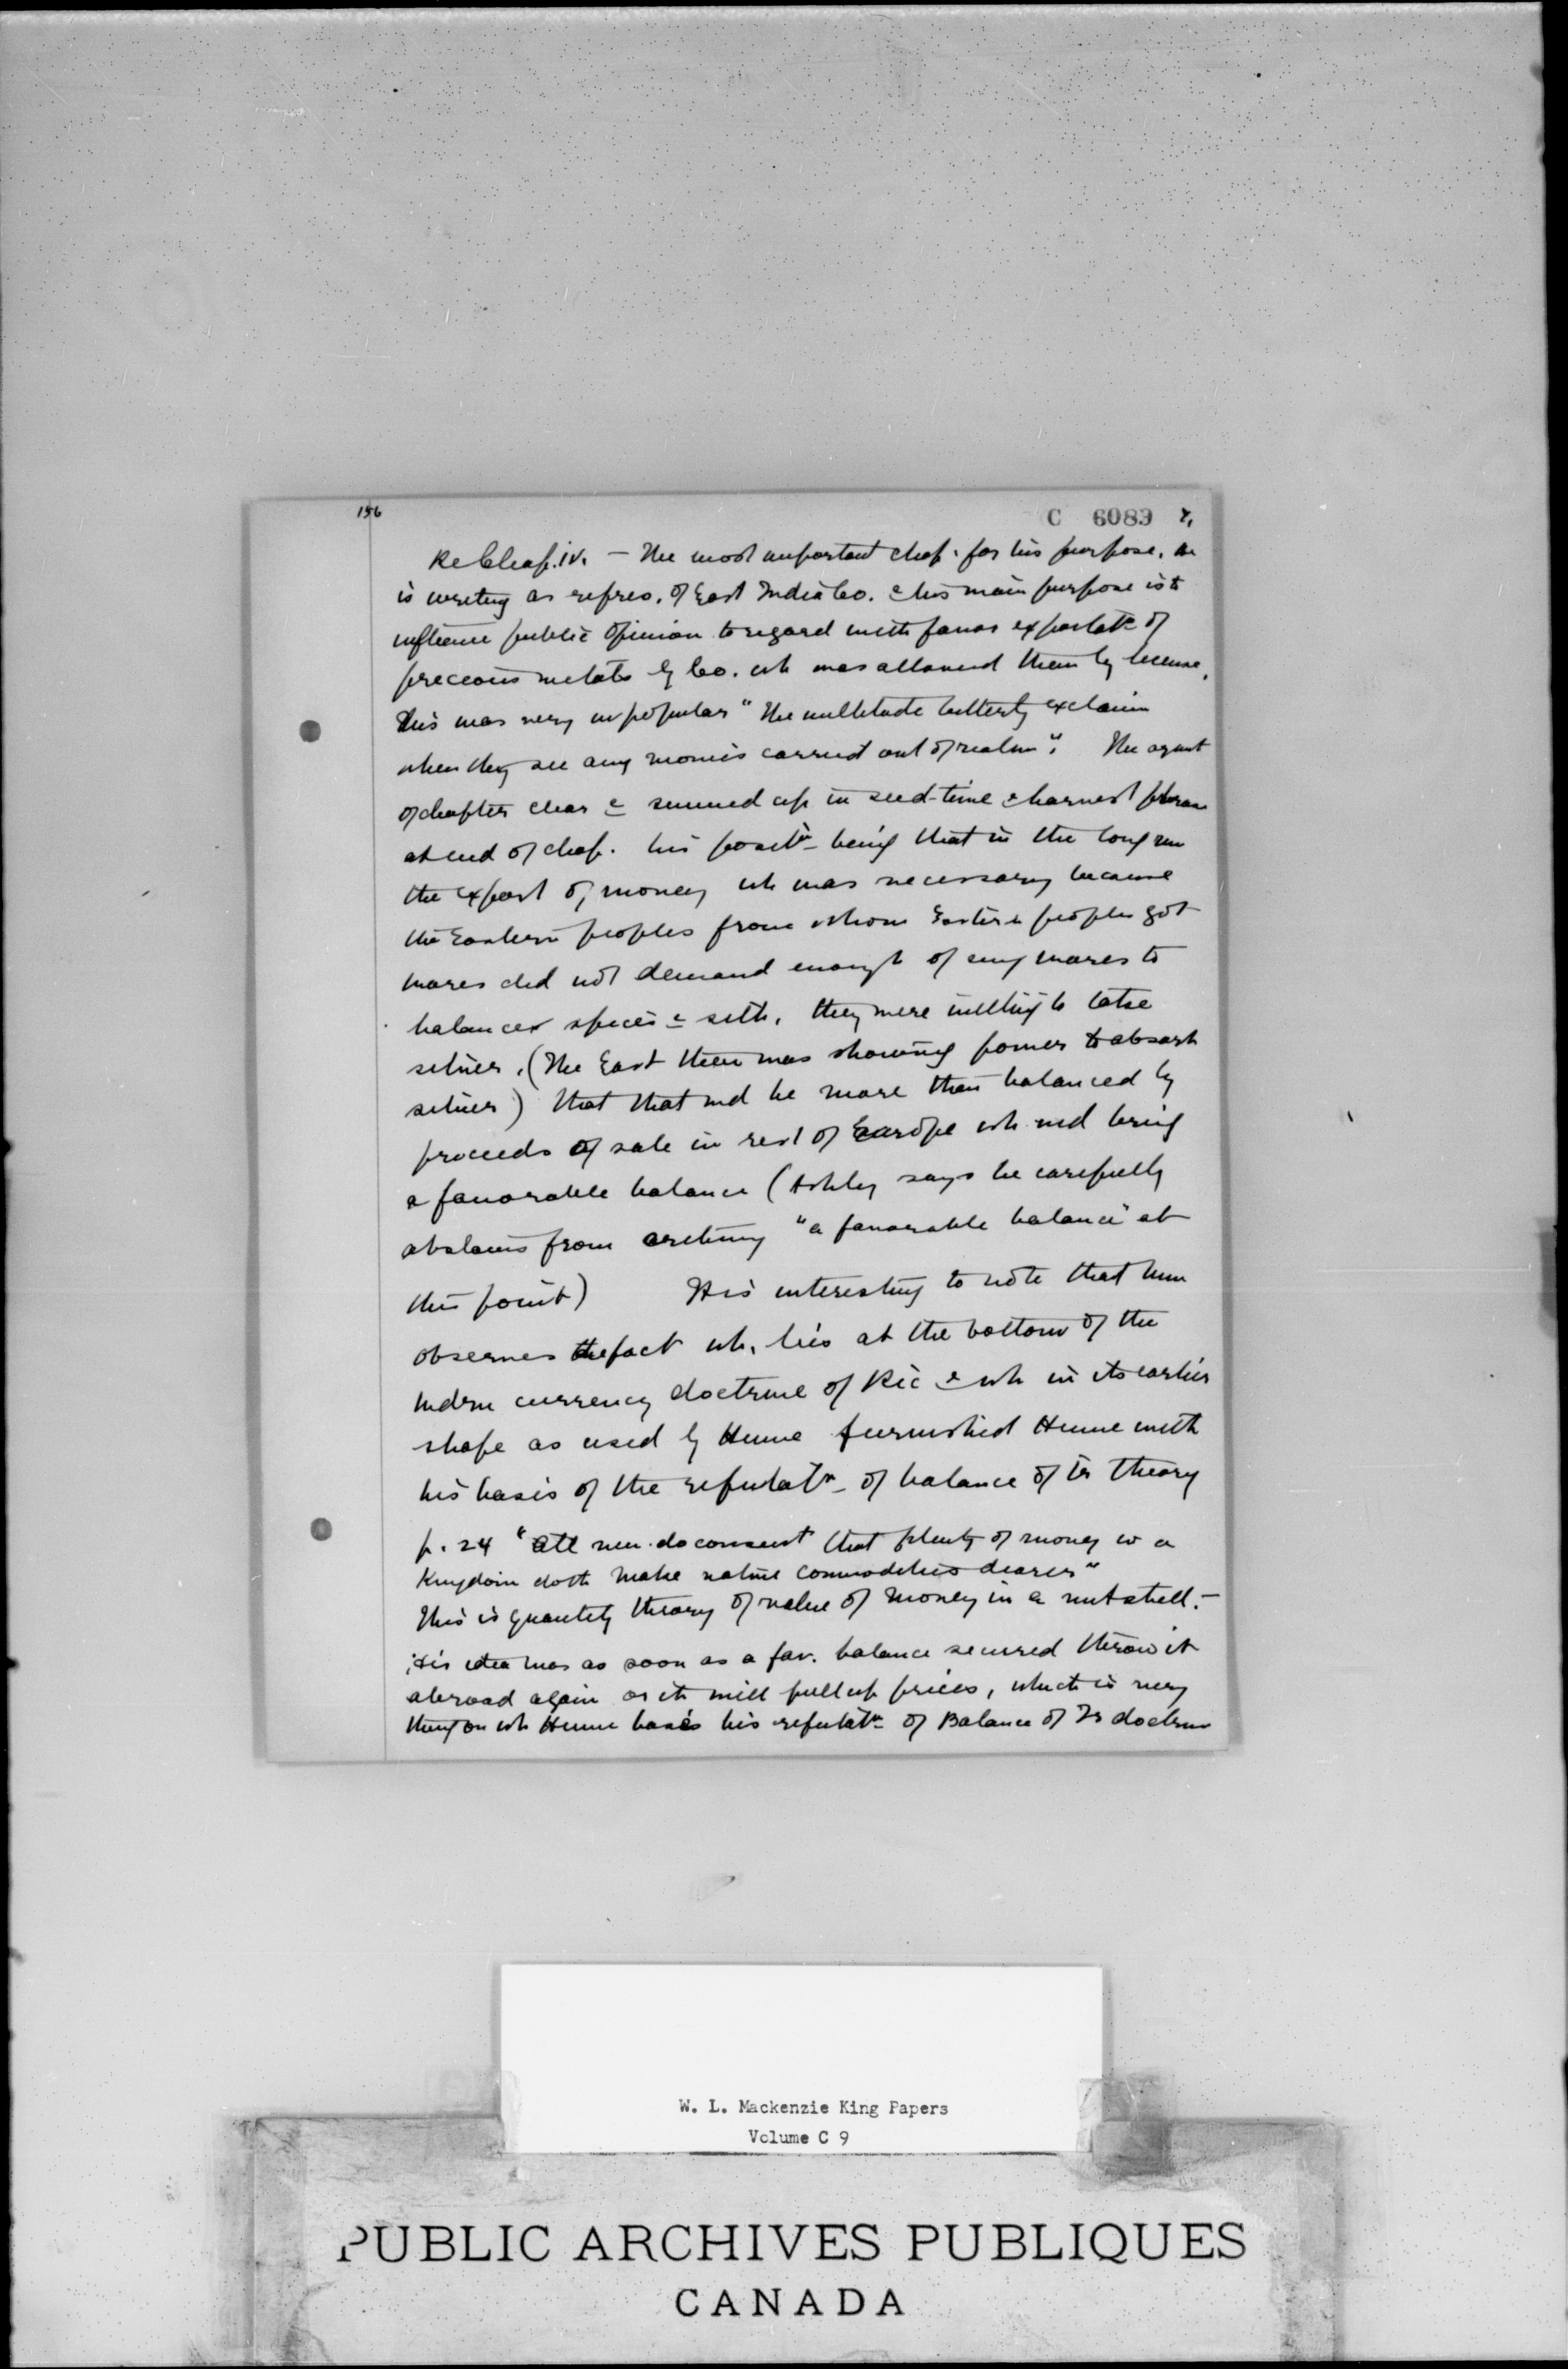 156
C 6083 7.
Re Chap. iv. – The most important chap. for his purpose. He
is writing as repres. of East India Co. & his main purpose is to
influence public opinion to regard with favor exportatn of
precious metals by Co. wh was allowed them by license.
This was very unpopular "The multitude bitterly exclaim
when they see any monies carried out of realm". The agmt
of chapter clear & summed up in seed-time & harvest phrase
at end of chap. his positn being that in the long run
the export of money wh was necessary because
the Eastern peoples from whom Eastern peoples got
wares did not demand enough of eng wares to
balance spices & silk, they were willing to take
silver. (The East then was showing power to absorb
silver) that that wd be more than balanced by
proceeds of sale in rest of Europe wh wd bring
a favorable balance (Ashley says he carefully
abstains from "a favorable balance" at
this point) It is interesting to note that Mun
observes the fact wh. lies at the bottom of the
mdrn currency doctrine of Ric & wh in its earlier
shape as used by Hume furnished Hume with
his basis of the refutatn of balance of tr theory
p. 24 "All men do consent that plenty of money in a
Kingdom doth make native commodities dearer"
This is quantity theory of value of money in a nutshell. –
His idea was as soon as a fav. balance secured throw it
abroad again or it will pull up prices, which is very
thing on wh Hume bases his refutatn of Balance of Tr doctrine
W. L. Mackenzie King Papers
Volume C 9
PUBLIC ARCHIVES PUBLIQUES
CANADA